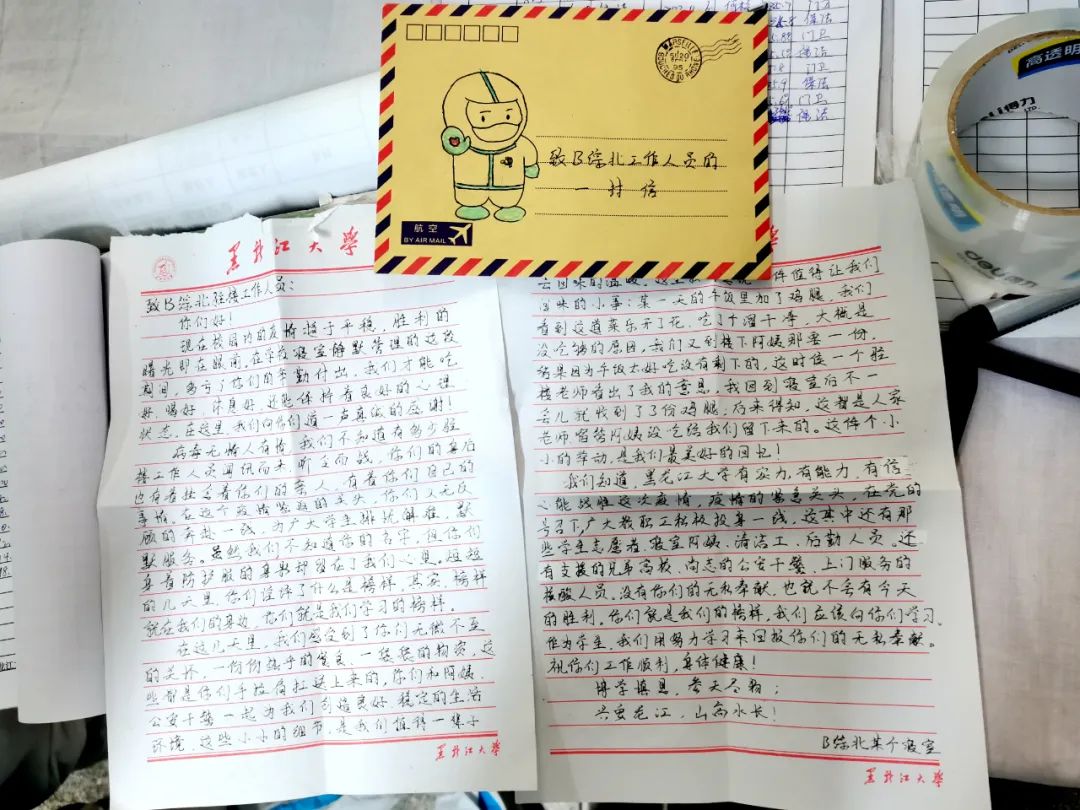 致B综北工作人员的
一封信
航空
BY AIR MAIL
MARSEILLE
BOUCHES DU RHONE
高透明
得力
deli
门卫
保洁
门卫
保洁
门卫
保洁
黑龙江大学
致B综北驻楼工作人员:
你们好!
现在校园内的疫情趋于平稳,胜利的
曙光即在眼前。在学校寝室静默管理的这段
期间,多亏了你们的辛勤付出,我们才能吃
好,喝好,休息好,还能保持着良好的心理
状态,在这里,我们向你们道一声真诚的感谢!
病毒无情人有情,我们不知道有多少驻
楼工作人员闻讯而来,听令而战,你们的身后
也有着挂念着你们的家人,有着你们自己的
事情。在这个疫情紧急的关头,你们义无反
顾的奔赴一线,为广大学生排忧解难,默
默服务。虽然我们不知道你的名字,但你们
身着防护服的身影却留在了我们心里。短短
的几天里,你们诠释了什么是榜样,其实,榜样
就在我们的身边,你们就是我们学习的榜样。
在这几天里,我们感受到了你们无微不至
的关怀,一份份热乎的餐食,一袋袋的物资,这
些都是你们手拉肩扛送上来的,你们和阿姨,
公安干警一起为我们创造良好、稳定的生活
环境。这些小小的细节,是我们值得一辈子
黑龙江大学
去回味的温暖。件值得让我们
回味的小事:某一天的午饭里加了鸡腿,我们
看到这道菜乐开了花,吃了个溜干净,大概是
没吃够的原因,我们又到楼下阿姨那要一份,
结果因为午饭太好吃没有剩下的,这时候一个驻
楼老师看出了我的意思,我回到寝室后不一
会儿就收到了3份鸡腿,后来得知,这都是人家
老师留给阿姨没吃给我们留下来的。这件个小
小的举动,是我们最美好的回忆!
我们知道,黑龙江大学有实力,有能力,有信
心能战胜这次疫情,疫情的紧急关头,在党的
号召下,广大教职工积极投身一线,这其中还有那
些学生志愿者、寝室阿姨、清洁工、后勤人员。还
有支援的兄弟高校、尚志的公安干警、上门服务的
核酸人员。没有你们的无私奉献,也就不会有今天
的胜利,你们就是我们的榜样,我们应该向你们学习。
作为学生,我们用努力学习来回报你们的无私奉献。
祝你们工作顺利,身体健康!
博学慎思,参天尽物;
兴安龙江,山高水长!
B综北某个寝室
黑龙江大学